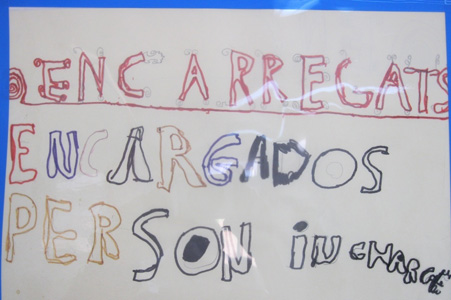 ENCARREGATS
ENCARGADOS
PERSON iN CHARGE